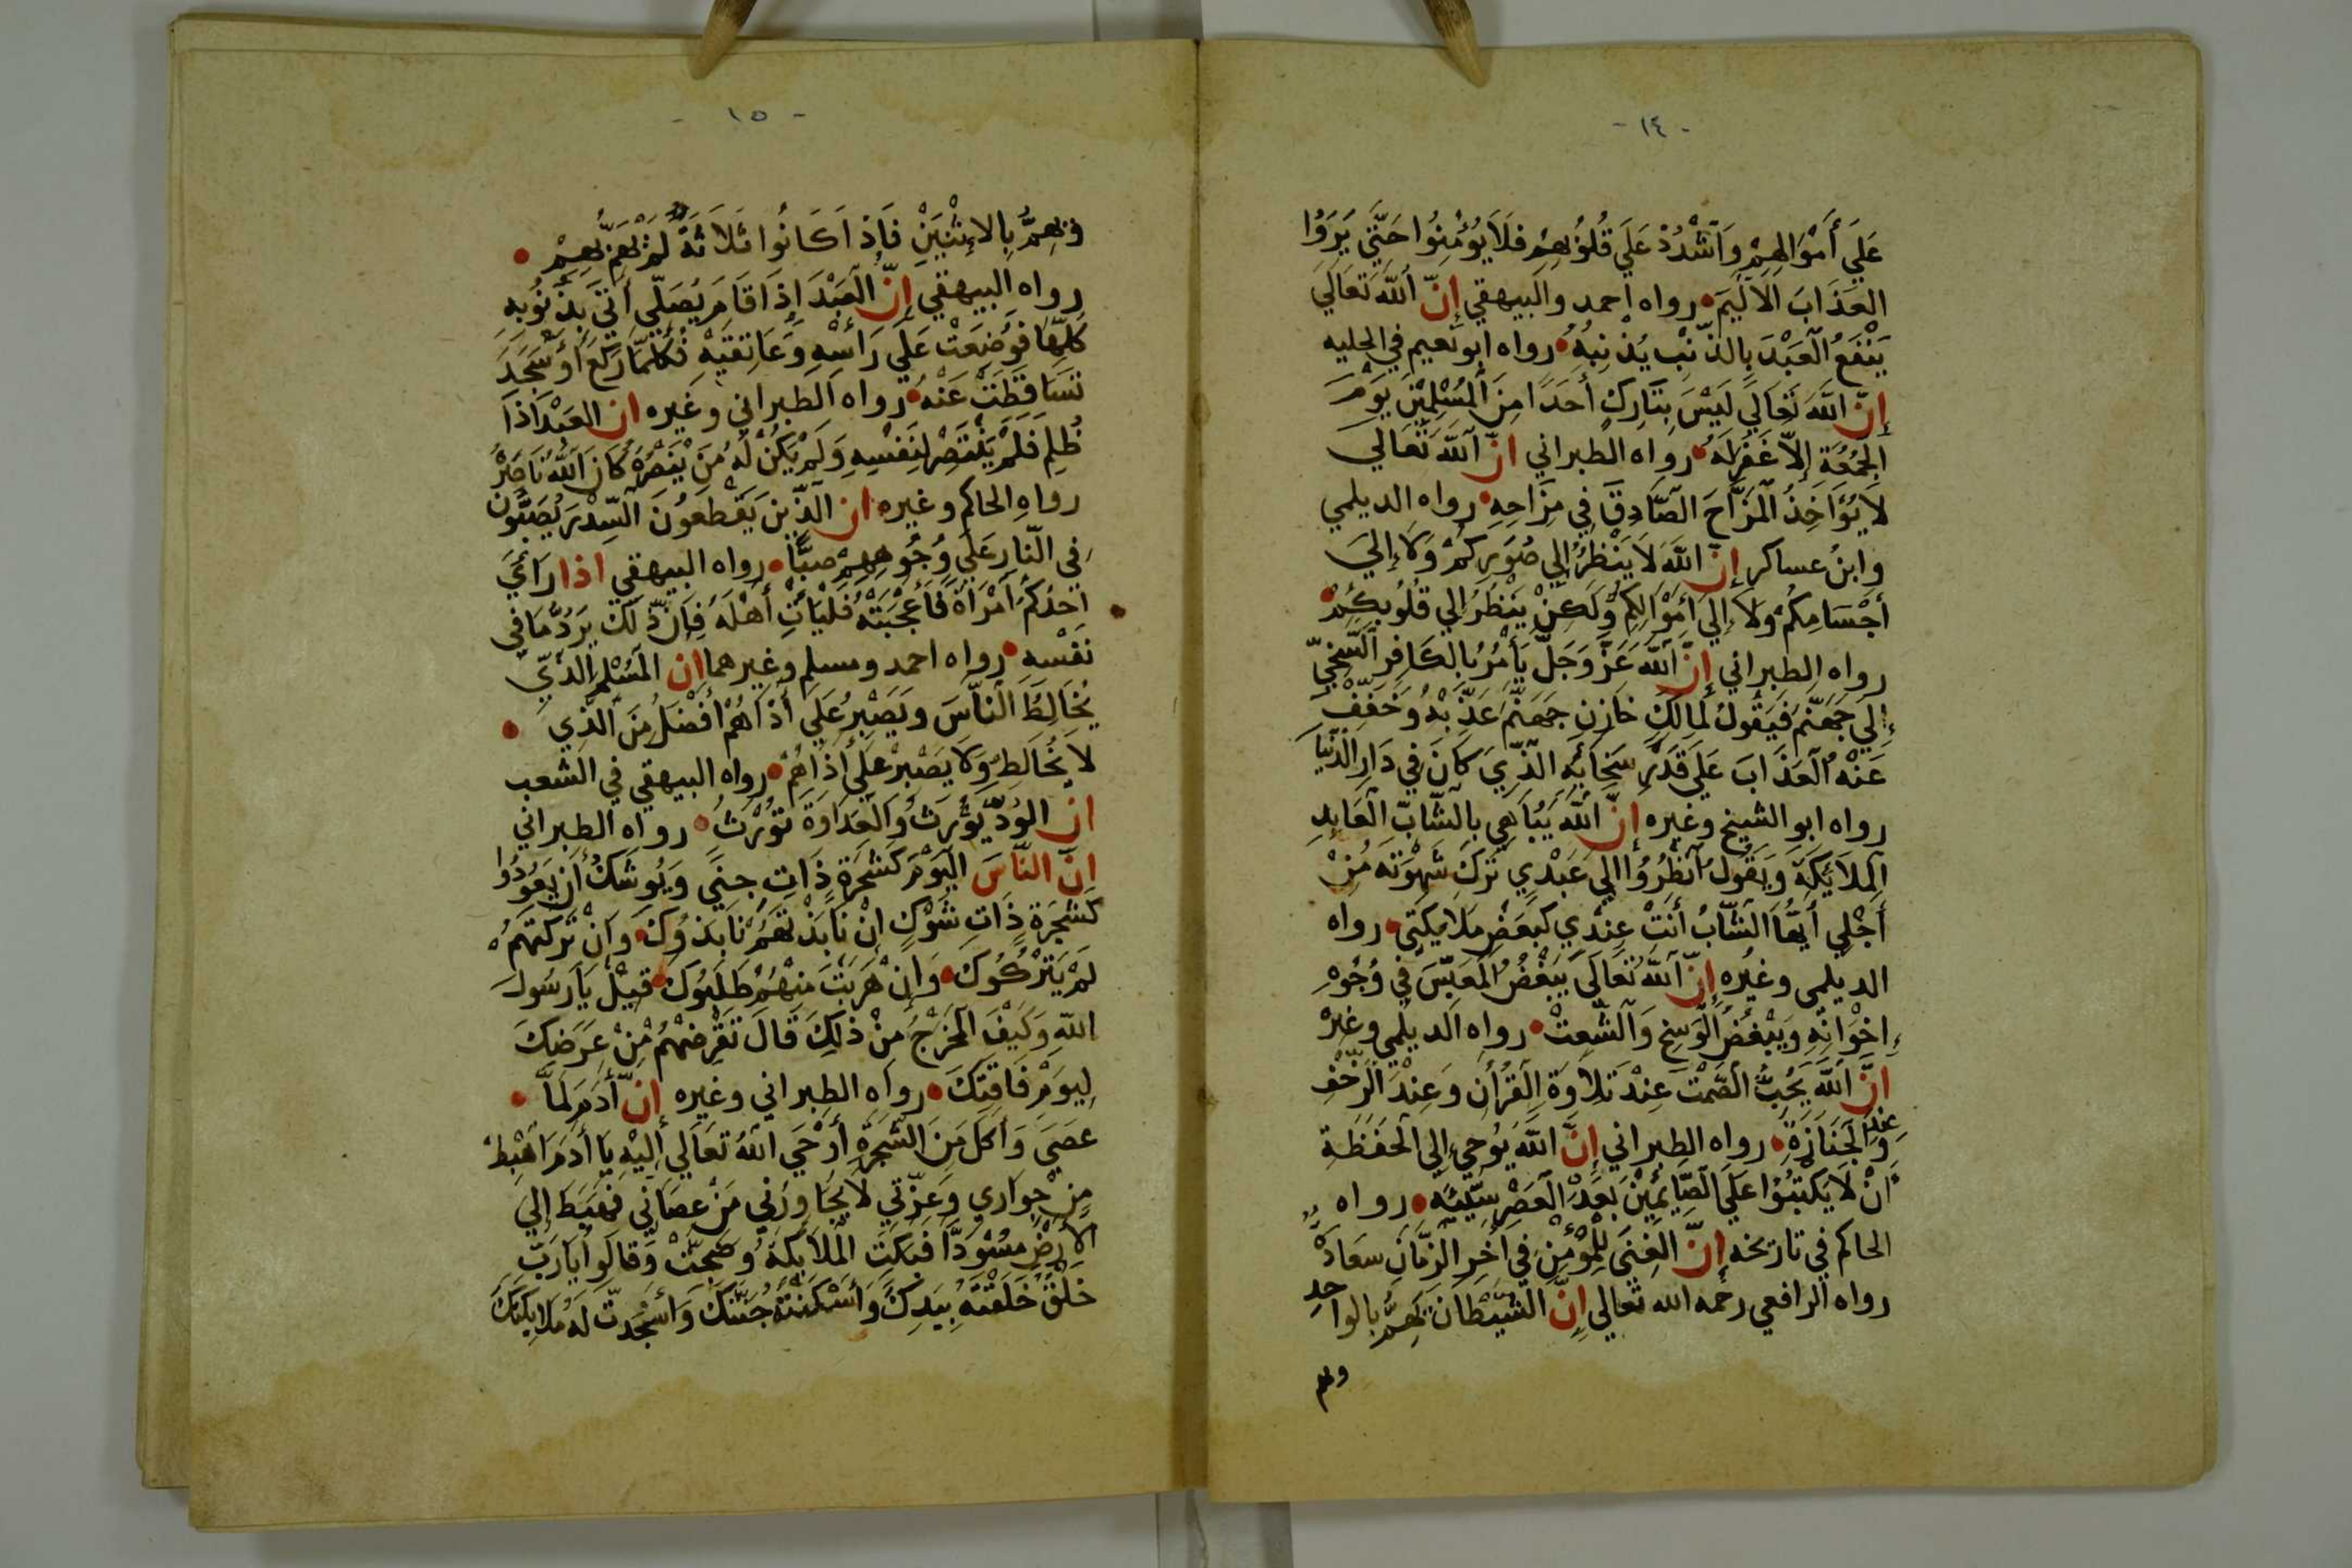 - ١٤ -
عَلَي أَمْوَالِهِمْ وَاَشْدُدْ عَلَي قُلُوُبِهِمْ فَلاَ يُؤْمِنُوا حَتَّي يَرَوُا
العَذَابَ الاَلِيَمَ رواه احمد والبيهقي إنّ اَللّهَ تَعَالَيَ
يَنْفَعُ اَلعَبْدَ بِالذَّنْبِ يُذْنِبُهُ رواه ابو نعيم في الحليه
إنّ اللّهَ تَعَالَي لَيْسَ بِتَارِكٍ أَحَدًا مِنَ اَلمُسْلِمِيْنَ يَوْمَ
اَلجُمُعَةِ إلاّ غَفَرَلَهُ رواه الطبراني انّ اَللّهَ تَعَالَي
لاَيُؤَاخِذُ اَلمَزَّاحَ الَصَّادِقَ فِي مِزَاحِهِ رواه الديلمي
وابنُ عساكر إنّ اللّهَ لاَيَنْظُرُ إلي صُوَرِكُمْ وَلاَ إليَ
أَجْسَامِكُمْ وَلاَ إليَ أَمْوَالِكِمُ وَلَكِنْ يَنْظُرُ إلي قُلُوُبِكُمْ
رواه الطبراني إنَّ اَللّهَ عَزَّ وَجَلَّ يَأمُرُ بِالكَافِرِ اَلسَّخِيِّ
إلَي جَهَنَّمَ فَيَقُولُ لِمَالِكٍ خَازِنِ جَهَنَّمَ عَذِّبْهُ وَخَفِّفْ
عَنْهُ اَلعَذَابَ عَلَي قَدْرِ سَخَائِهِ الَّذِّيَ كَانَ فِي دَارِ الَدُّنْيَا
رواه ابو الشيخ وغيره إنّ اللّهَ يُبَاهَي بِالشّابِّ اَلعَابِدِ
اَلمَلاَئِكَةَ وَيَقُولُ اَنْظُرُوُا اليِ عَبْدِي تَرَكَ شَهْوَتَهُ مُنِْ
أَجْلِي أَيُّهَا الَشَّابُّ أَنْتَ عِنْدِي كَبَعْضِ مَلاَيكَتِي رواه
الديلمي وغيُره إنّ اَللّهَ تَعَالَيَ يَبْغُضُ اَلمُعَبِّسَ في وُجُوْهِ
إخْوَانِهِ وَيَبْغُضُ اَلْوَسِخَ وَالَشَّعِثْ رواه الَديلمي وغيرْ
انَّ اَللّهَ يُحِبُّ الَصَّمْتَ عِنْدَ تِلاَوَةِ اَلقُرْأَنِ وَعِنْدَ الَزّحْفِ
وَعِنْدَ اَلجَنَازَةِ رواه الطبراني إنَّ اللّهَ يُوُحِي إلي اَلحَفَظَةِ
اَنْ لاَيَكْتُبُوُا عَلَي الَصِّايِمِيْنَ بَعْدَ اَلعَصْرِ سَيِّئِهً رواه
الحاكم في تاريخه إنّ الغِنَي لِلْمُؤْمِنِ فِي أَخِرِ الَزَّمَانِ سَعَادَةٌ
رواه الرافعي رحمه الله تعالي إنّ الشَّيْطَانَ يَهِمُّ بِالوَاحِدِ
ويهم
- ١٥ -
وَيَهِمُّ بِالاِثْنَيْنِ فَاذَاَ كَانُوا ثَلاَثَةً لَمْ يَهِمَّ بِهِمْ
رواه البيهقي إنّ اَلعَبْدَ إذَا قَامَ يُصَلِّي أُتِيَ بِذُنُوُبِهِ
كُلِّهَا فَوُضِعَتْ عَلَي رَأْسِهِ وَعَاتِقَيْهِ فَكُلَّمَا رَكَعَ أَوْ سَجَدَ
تَسَاقَطَتْ عَنْهُ رواه الطبراني وغيره ان العَبْدَ اذَا
ظُلِمَ فَلَمْ يَنْتَصِرْ لِنَفْسِهِ وَلَمْ يَكُنْ لَهُ مَنْ يَنْصُرُهُ كَانَ اَللّهُ نَاصِرْ
رواه الحاكم وغيره ان الَّذِّيْنَ يَقْطَعُوْنَ الَسِّدْرَ يُصَبُّوْنَ
فِي الَنّارِ عَلَي وُجُوُهِهِمْ صَبًّا رواه البيهقي اذا رَأَيَ
اَحَدُكُمُ اَمْرَأَةً فَأَعْجَبَتْهُ فَلْيَأْتِ أَهْلَهُ فَإنّ ذَلَكَ يَرُدُّ مَا في
نَفْسِهِ رواه احمد ومسلم وغيرهما إن الَمُسْلِمَ الَّذِّي
يُخَالِطُ اَلنَّاسَ وَيَصْبِرُ عَلَي أَذَاهُمْ أَفْضَلُ مِنَ الَّذِي
لاَيُخَالِطُ وَلاَ يَصْبِرُ عَلَي أَذَاهُمْ رواه البيهقي في الشعب
ان الوُدَّ يُوْرَثُ وَالَعَدَاوَةَ تُوُرَثُ رواه الطبراني
انّ النَّاسَ اليَوْمَ كَشَجَرَةٍ ذَاتِ جِنَيً وَيُوْشَكُ أَنْ يَعُوُدُوا
كَشَجَرَةٍ ذَاتِ شَوْكٍ إنْ نَابَذْتَهَمُ نَابَذُوكَ وَإنْ تَرَكْتَهُمُ
لَمْ يَتْرُكُوكَ وَإنْ هَرَبْتَ مِنْهُمْ طَلَبُوكَ قِيْلَ يَارَسُولَ
اللّهِ وَكَيْفَ اَلمَخْرَجُ مِنْ ذَلِكَ قَالَ تَقْرِضُهُمْ مِنْ عِرَضِكَ
لِيوَمْ فَاقَتِكَ رواه الطبراني وغيره إنّ أَدَمَ لَمَّا
عَصَيَ وَأَكَلَ مِنَ الَشَّجَرَةِ أَوْحَيَ اَللّهُ تَعَالَي إلَيْهِ يَا أَدَمَ اَهْبِطْ
مِنْ جِوَارِي وَعِزَّتِي لاَيُجَاوِرُنِي مَنْ عَصَانِي فَهَبَطَ إلي
الأَرْضِ مُسْوَدًّا فَبَكَتِ اَلمَلاَئِكَةُ وَضَجَّتْ وَقَالُوا يَارَبِّ
خَلْقٌ خَلَقْتَهُ بِيَدِكَ وَأَسْكَنْتَهُ جَنَّتَكَ وَأَسْجَدتَّ لَهُ مَلاَيِكَتَكَ